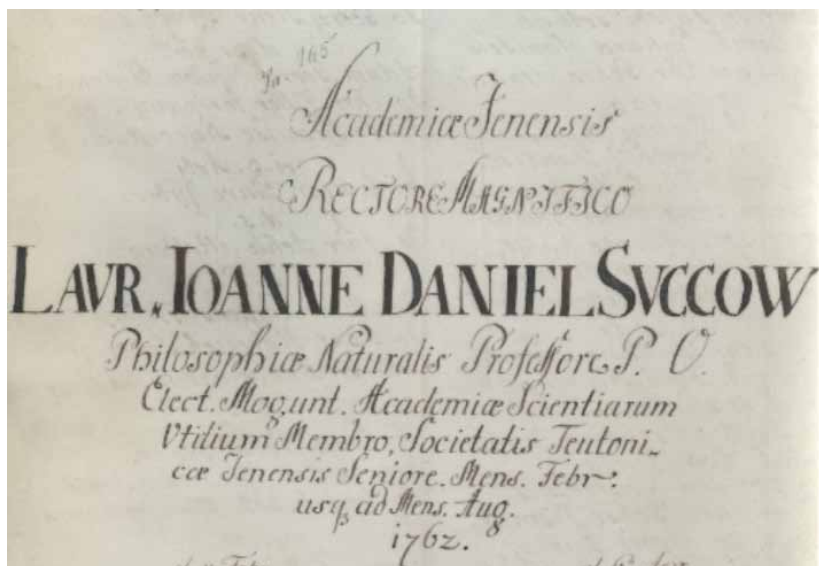 165
Academiæ Jenensis
RECTORE MAGNIFICO
LAVR. IOANNE DANIEL SVCCOW
Philosophiæ Naturalis Professore P. O.
Elect. Mogunt. Academiæ Scientiarum
Vtilium Membro, Societatis Teutoni-
cæ Jenensis Seniore. Mens. Febr.
usq. ad Mens. Aug.
1762.